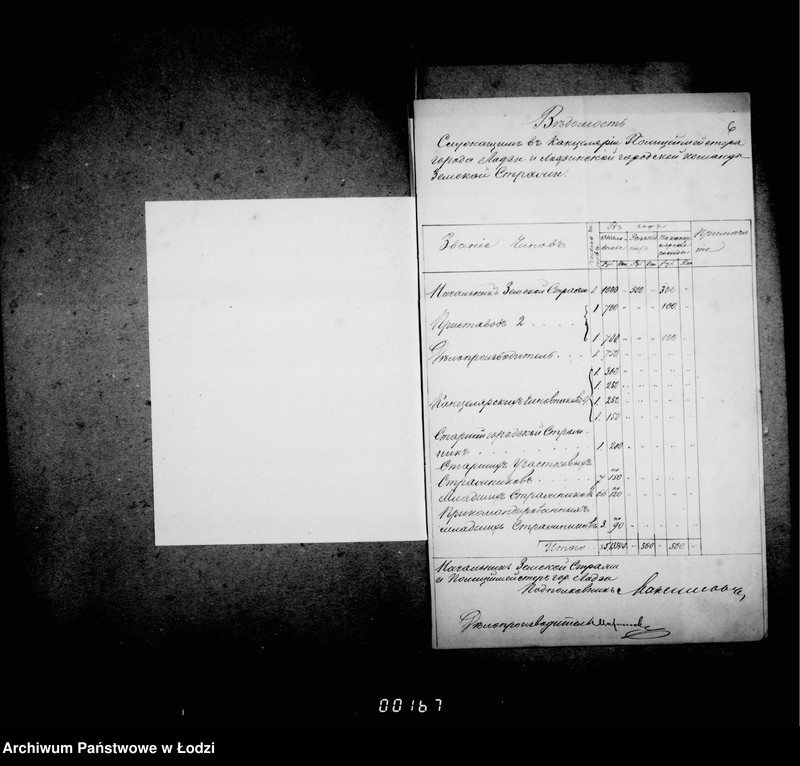 6
Вѣдомость
Служащимъ въ Канцеляріи Полиціймейстера
города Лодзи и Лодзинской городской команды
Земской Стражи.
Званіе Чиновъ
Въ годъ
Жалованье
Разъѣздныхъ
Примѣчаніе
Руб Коп Ру Коп Руб Коп
Начальникъ Земской Стражи 1 1000 - 500 - 300 -
1 700 - - - 100 -
Приставовъ 2
1 700 - - - 100 -
Дѣлопроизводитель 1 750
1. 300
1. 250
Канцелярскихъ чиновниковъ 1. 250
1. 150
Старшій городской Страж-
никъ 1. 200
Старшихъ Участковыхъ по
Стражниковъ 150
Младшихъ Стражниковъ 120
Прикомандированныхъ по
младшихъ Стражниковъ 3 90
Итого 500 - 500
Начальникъ Земской Стражи
и Полиціймейстеръ гор Лодзи
Подполковникъ Максимовичъ
Дѣлопроизводитель
00167
Archiwum Państwowe w Łodzi